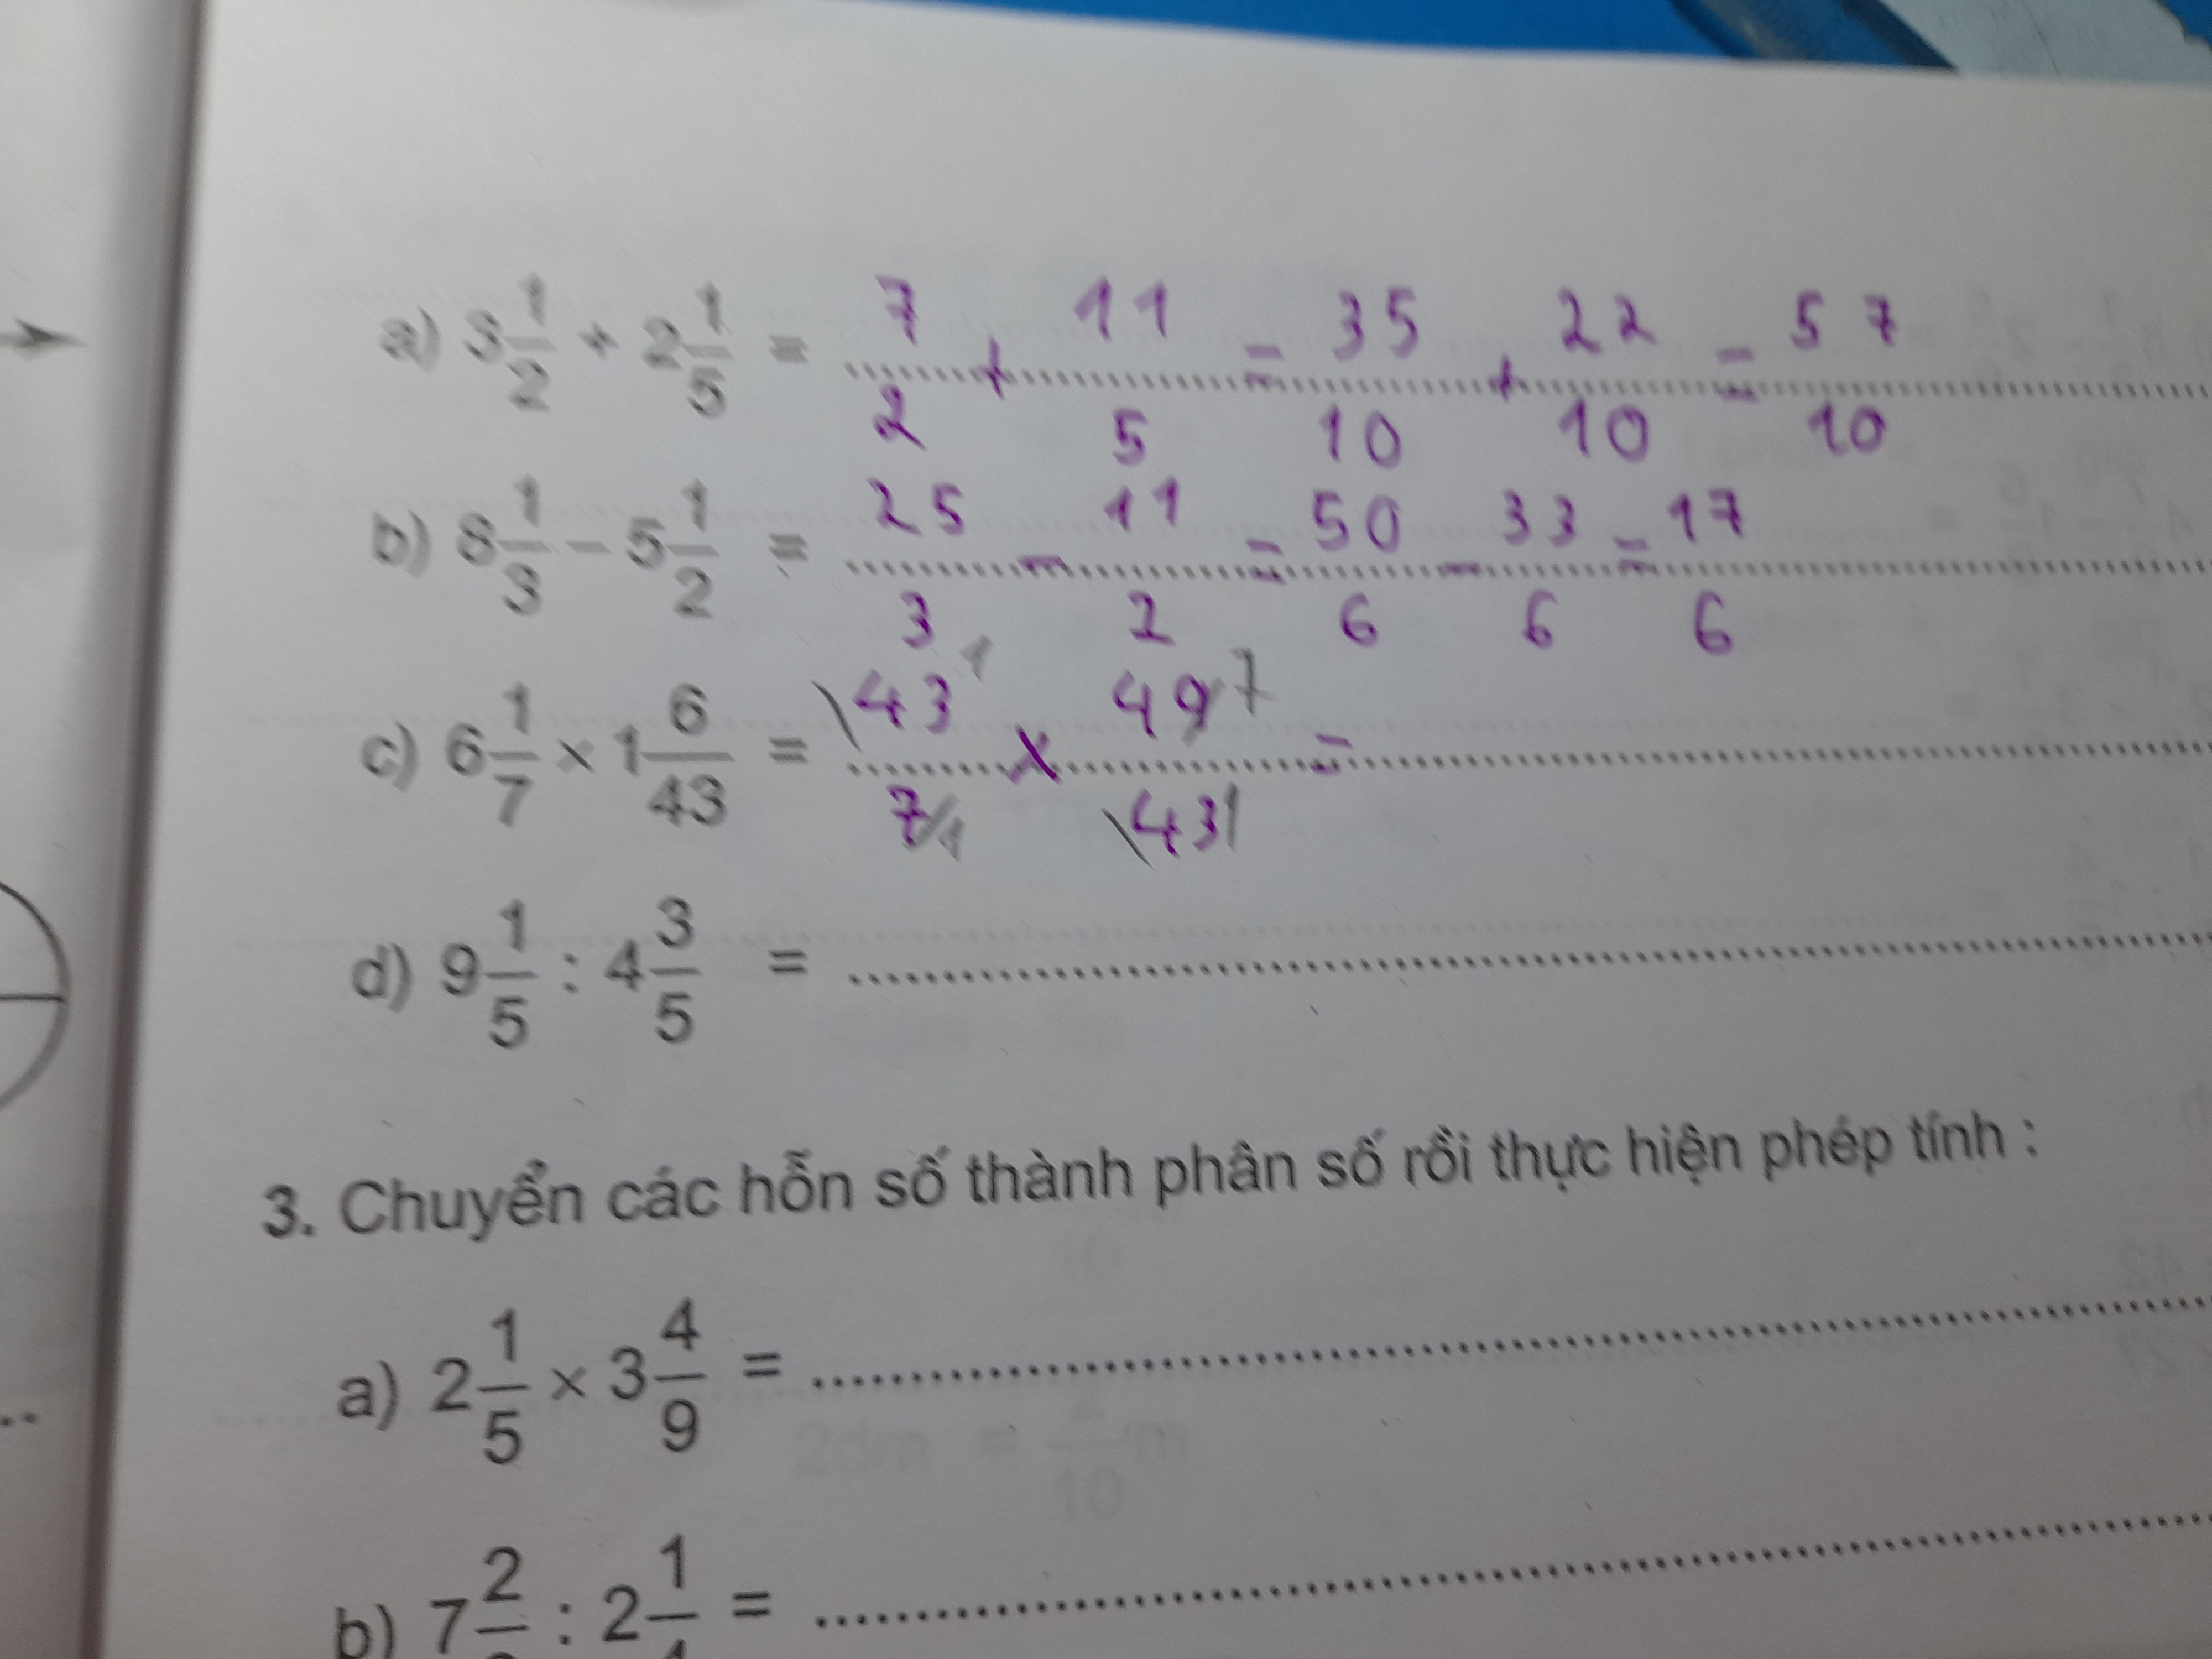 a) 3 1/2 + 2 1/5 = 7/2 + 11/5 = 35/10 + 22/10 = 57/10
b) 8 1/3 − 5 1/2 = 25/3 − 11/2 = 50/6 − 33/6 = 17/6
c) 6 1/7 × 1 6/43 = 43 1/7 1 × 49 7/43 1 =
d) 9 1/5 : 4 3/5 =
3. Chuyển các hỗn số thành phân số rồi thực hiện phép tính :
a) 2 1/5 × 3 4/9 =
b) 7 2/ : 2 1/ =
2dm = 2/10 m